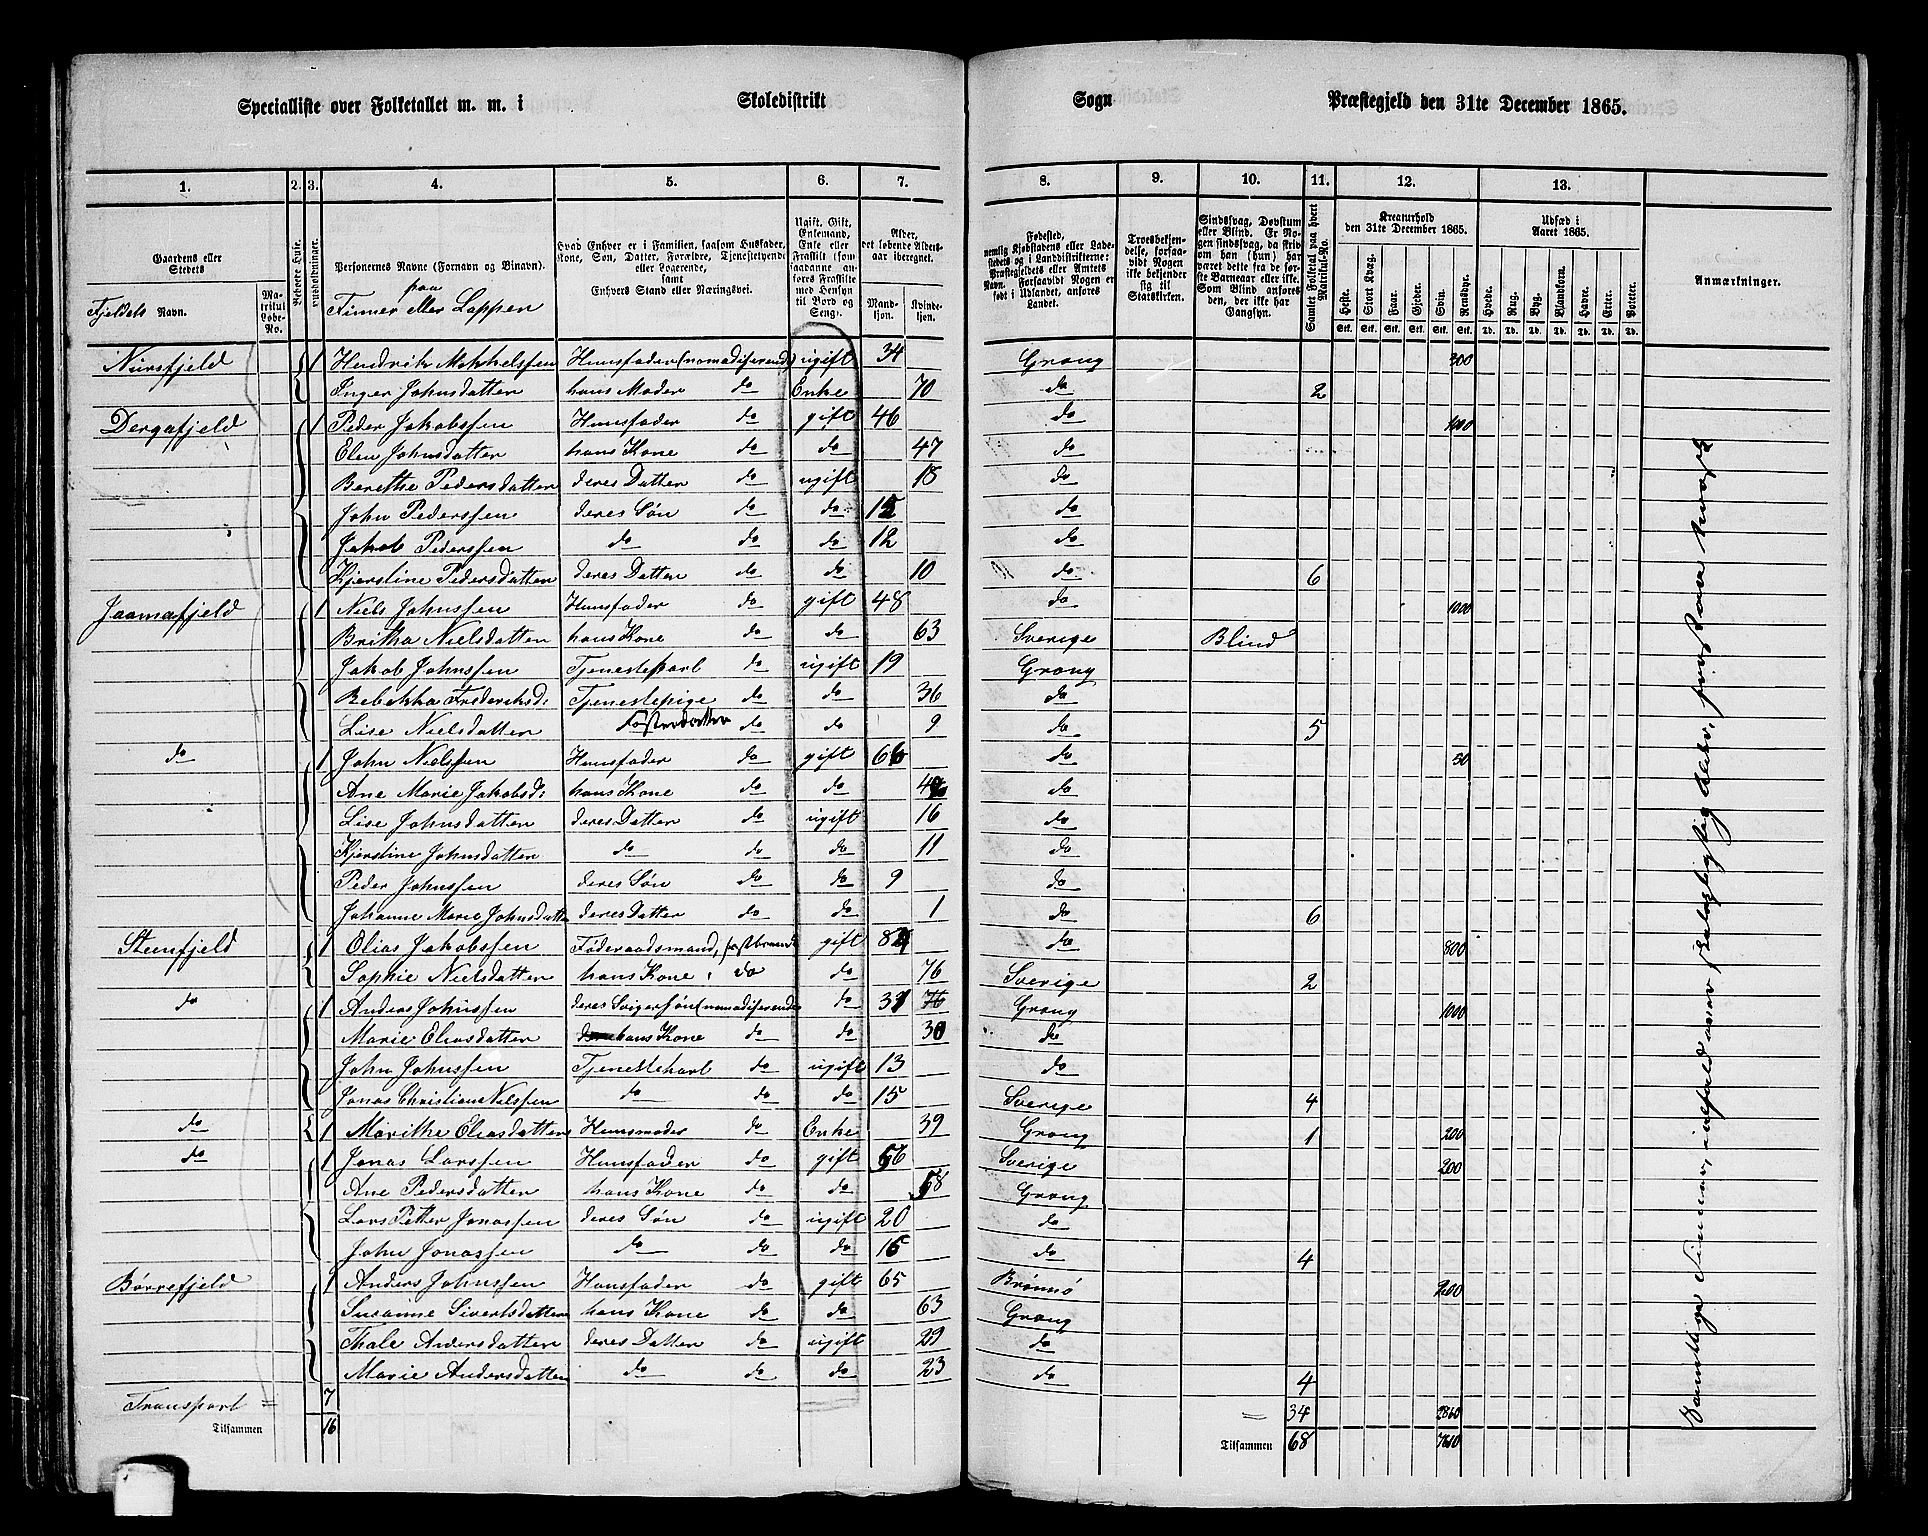 Specialliste over Folketallet m. m. i Skoledistrikt Sogn Præstegjeld den 31te December 1865.
1. 2. 3. 4. 5. 6. 7. 8. 9. 10. 11. 12. 13.
Gaardens eller Stedets Fjeldets Navn.
Matrikul Løbe-No.
Beboede Huse.
Huusholdninger.
Personernes Navne (Fornavn og Binavn).
paa Finner eller Lappen
Hvad Enhver er i Familien, saasom Husfader, Kone, Søn, Datter, Forældre, Tjenestetyende eller Logerende, samt Enhvers Stand eller Næringsvei.
Ugift, Gift, Enkemand, Enke eller Fraskilt (som saadanne anføres Fraskilte med Hensyn til Bord og Seng).
Alder, det løbende Aldersaar iberegnet.
Mandkjøn. Kvindekjøn.
Fødested, nemlig Kjøbstadens eller Ladestedets eller i Landdistrikterne: Præstegjeldets eller Amtets Navn. Forsaavidt Nogen er født i Udlandet, anføres Landet.
Troesbekjendelse, forsaavidt Nogen ikke bekjender sig til Statskirken.
Sindssvag, Døvstum eller Blind. Er Nogen sindssvag, da skrives han (hun) har været dette fra de første Barneaar eller ikke. Som Blind anføres den, der ikke har Gangsyn.
Samlet Folketal paa hvert Matrikul-No.
Kreaturhold den 31te December 1865.
Heste. Stort Kvæg. Faar. Gjeder. Svin. Rensdyr.
Udsæd i Aaret 1865.
Hvede. Rug. Byg. Blandkorn. Havre. Erter. Poteter.
Anmærkninger.
Stk. Stk. Stk. Stk. Stk. Stk. Td. Td. Td. Td. Td. Td. Td.
Nursfjeld 1 Hendrik Mikkelssen Huusfader (nomadiserende) ugift 34 Grong 300
Inger Johnsdatter hans Moder do Enke 70 do 2
Dergafjeld 1 Peder Jakobssen Huusfader do gift 46 do 1000
Elen Johnsdatter hans Kone do do 47 do
Berethe Pedersdatter deres Datter do ugift 18 do
John Pederssen deres Søn do do 15 do
Jakob Pederssen do do do 12 do
Kjerstine Pedersdatter deres Datter do do 10 do 6
Jaamafjeld 1 Niels Johnssen Huusfader do gift 48 do 1000
Britha Nielsdatter hans Kone do do 63 Sverige Blind
Jakob Johnssen Tjenestekarl do ugift 19 Grong
Rebekka Frederiksd: Tjenestepige do do 36 do
Lise Nielsdatter Fosterdatter do do 9 do 5
do 1 John Nielssen Huusfader do gift 66 do 50
Ane Marie Jakobsd: hans Kone do do do
Lise Johnsdatter deres Datter do ugift 16 do
Kjerstine Johnsdatter do do do 11 do
Peder Johnssen deres Søn do do 9 do
Johanne Marie Johnsdatter deres Datter do do 1 do 6
Steenfjeld 1 Elias Jakobssen Føderaadsmand, fastboende gift do 800
Sophie Nielsdatter hans Kone do do 76 Sverige 2
do 1 Anders Johnssen deres Svigersøn (nomadiserende do 31 76 Grong 1000
Marie Eliasdatter hans Kone do do 30 do
John Johnssen Tjenestekarl do ugift 13 do
Jonas Christian Nielssen do do 15 Sverige 4
do 1 Marithe Eliasdatter Huusmoder do Enke 39 Grong 1 200
do 1 Jonas Larssen Huusfader do gift 56 Sverige 200
Ane Pedersdatter hans Kone do do 58 Grong
Lars Petter Jonassen deres Søn do ugift 20 do
John Jonassen do do do 15 do 4
Børrefjeld 1 Anders Johnssen Huusfader do gift 65 Brønnø 200
Susanne Sivertsdatter hans Kone do do 63 Grong
Thale Andersdatter deres Datter do ugift 29 do
Marie Andersdatter do do do 23 do 4
Transport = 7 = 34 2860
Tilsammen 16 Tilsammen 68 7610
Samtlige Finner,